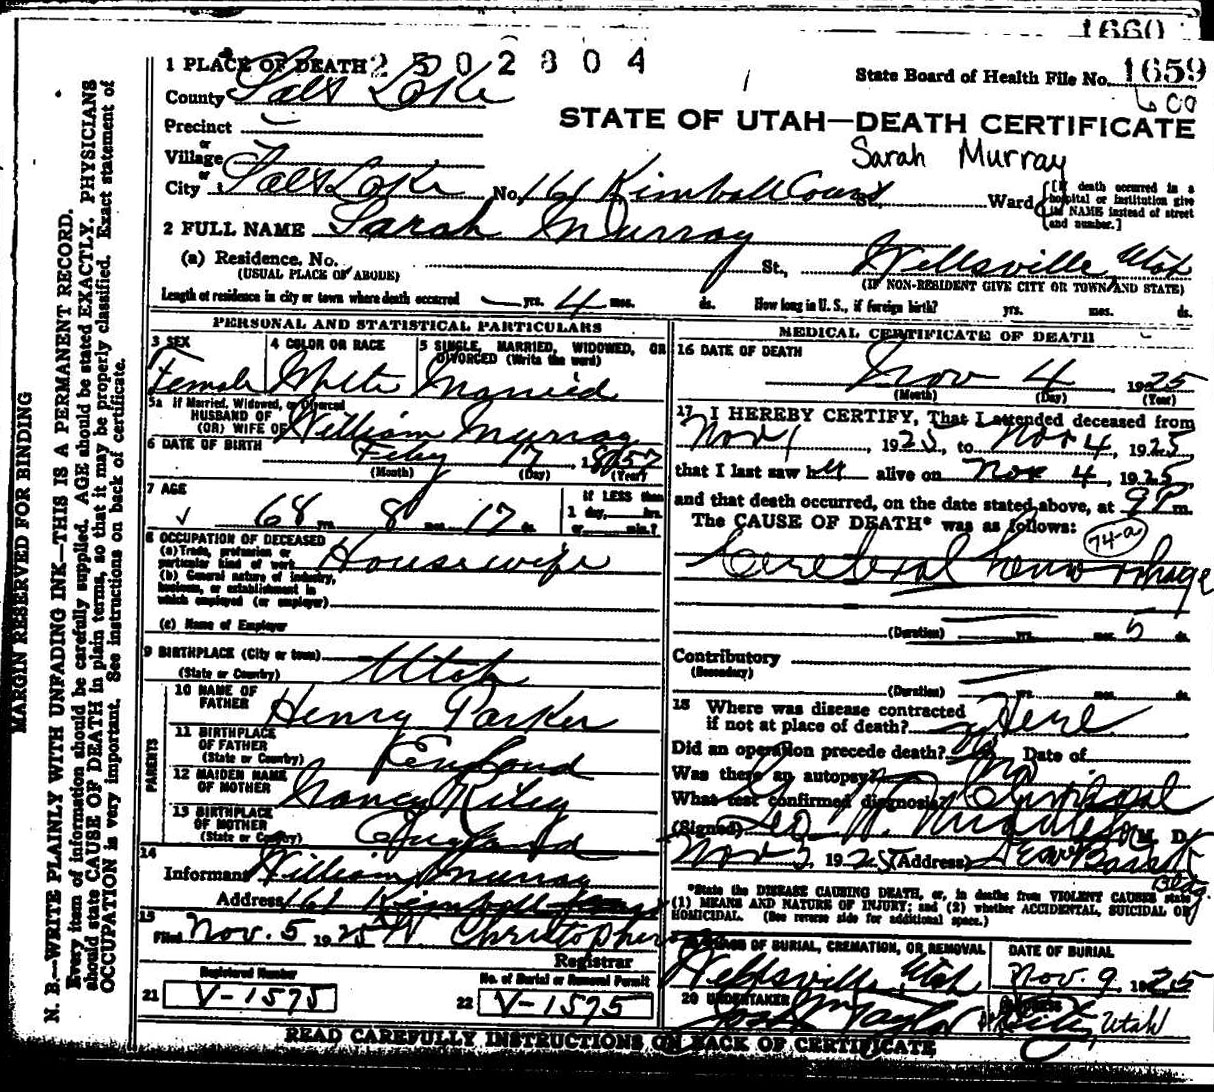 1660
2502804
State Board of Health File No. 1659
1 PLACE OF DEATH
County Salt Lake
STATE OF UTAH—DEATH CERTIFICATE
Precinct
Sarah Murray
or
Village
or
City Salt Lake No. 161 Kimball Court St., Ward [If death occurred in a hospital or institution give its NAME instead of street and number.]
2 FULL NAME Sarah Murray
(a) Residence, No. St., Wellsville, Utah
(USUAL PLACE OF ABODE) (IF NON-RESIDENT GIVE CITY OR TOWN AND STATE)
Length of residence in city or town where death occurred — yrs. 4 mos. ds. How long in U. S., if foreign birth? yrs. mos. ds.
PERSONAL AND STATISTICAL PARTICULARS
3 SEX 4 COLOR OR RACE 5 SINGLE, MARRIED, WIDOWED, OR DIVORCED (Write the word)
Female White Married
5a If Married, Widowed, or Divorced
HUSBAND OF
(OR) WIFE OF William Murray
6 DATE OF BIRTH Feby 17 1857
(Month) (Day) (Year)
7 AGE 68 yrs. 8 mos. 17 ds.
If LESS than
1 day, hrs.
or min.?
8 OCCUPATION OF DECEASED
(a) Trade, profession or
particular kind of work Housewife
(b) General nature of industry,
business, or establishment in
which employed (or employer)
(c) Name of Employer
9 BIRTHPLACE (City or town)
(State or Country) Utah
PARENTS
10 NAME OF
FATHER Henry Parker
11 BIRTHPLACE
OF FATHER
(State or Country) England
12 MAIDEN NAME
OF MOTHER Nancy Riley
13 BIRTHPLACE
OF MOTHER
(State or Country) England
14
Informant William Murray
Address 161 Kimball
15
Filed Nov. 5 1925 Christopherson
Registrar
Registered Number No. of Burial or Removal Permit
21 V-1575 22 V-1575
MEDICAL CERTIFICATE OF DEATH
16 DATE OF DEATH
Nov 4 1925
(Month) (Day) (Year)
17 I HEREBY CERTIFY, That I attended deceased from
Nov 1, 1925, to Nov 4, 1925
that I last saw her alive on Nov 4, 1925
and that death occurred, on the date stated above, at 9 P m.
The CAUSE OF DEATH* was as follows:
74-a
Cerebral hemorrhage
(Duration) yrs. mos. 5 ds.
Contributory
(Secondary)
(Duration) yrs. mos. ds.
18 Where was disease contracted
if not at place of death? Here
Did an operation precede death? No Date of
Was there an autopsy? No
What test confirmed diagnosis? Clinical
(Signed) M. D.
1925 (Address) Bldg.
*State the DISEASE CAUSING DEATH, or, in deaths from VIOLENT CAUSES state
(1) MEANS AND NATURE OF INJURY; and (2) whether ACCIDENTAL, SUICIDAL OR
HOMICIDAL. (See reverse side for additional space.)
PLACE OF BURIAL, CREMATION, OR REMOVAL DATE OF BURIAL
Wellsville, Utah Nov. 9, 1925
20 UNDERTAKER
Taylor City, Utah
READ CAREFULLY INSTRUCTIONS ON BACK OF CERTIFICATE
MARGIN RESERVED FOR BINDING
N. B.—WRITE PLAINLY WITH UNFADING INK—THIS IS A PERMANENT RECORD.
Every item of information should be carefully supplied. AGE should be stated EXACTLY. PHYSICIANS
should state CAUSE OF DEATH in plain terms, so that it may be properly classified. Exact statement of
OCCUPATION is very important. See instructions on back of certificate.